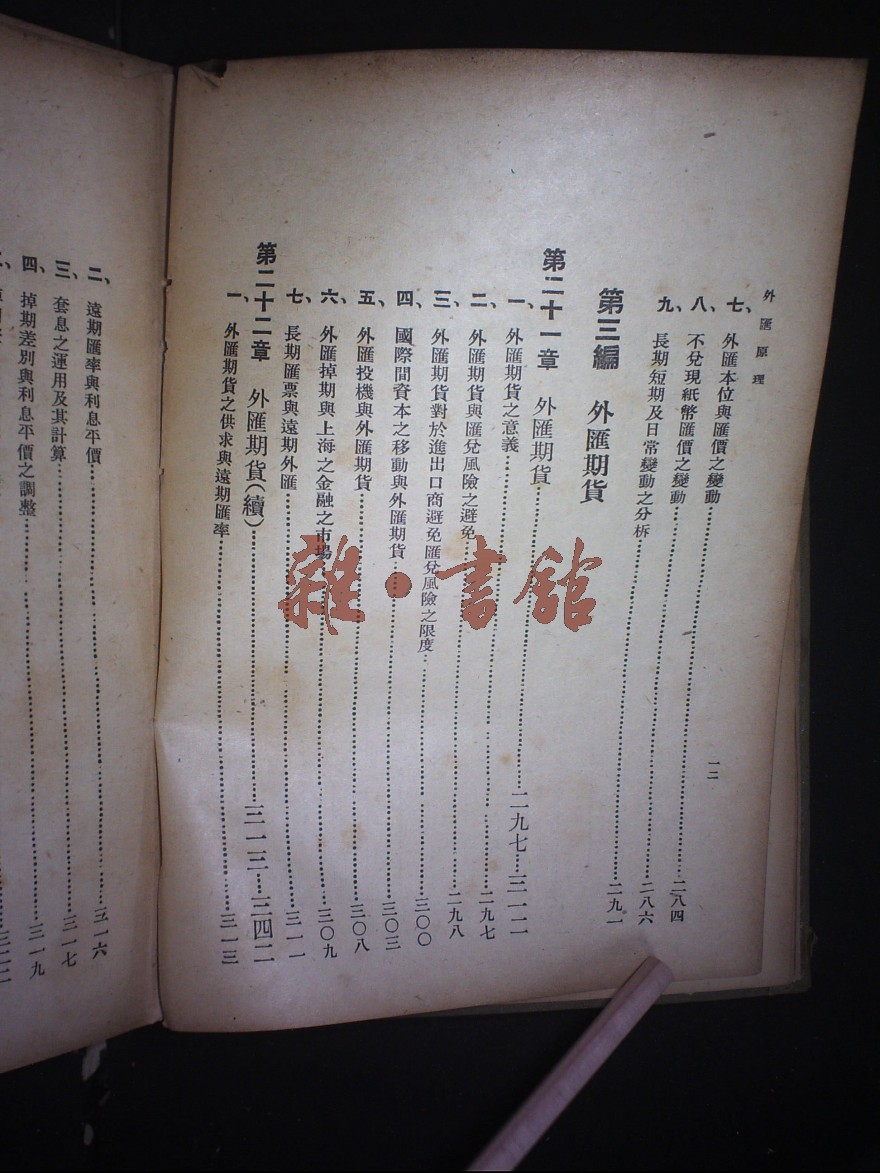 外匯原理 一二
七、外匯本位與匯價之變動……二八四
八、不兌現紙幣匯價之變動……二八六
九、長期短期及日常變動之分析……二九一
第三編 外匯期貨
第二十一章 外匯期貨……二九七—三一二
一、外匯期貨之意義……二九七
二、外匯期貨與匯兌風險之避免……二九八
三、外匯期貨對於進出口商避免匯兌風險之限度……三〇〇
四、國際間資本之移動與外匯期貨……三〇三
五、外匯投機與外匯期貨……三〇八
六、外匯掉期與上海之金融之市場……三〇九
七、長期匯票與遠期外匯……三一一
第二十二章 外匯期貨(續)……三一三—三四二
一、外匯期貨之供求與遠期匯率……三一三
二、遠期匯率與利息平價……三一六
三、套息之運用及其計算……三一七
四、掉期差別與利息平價之調整……三一九
雜·書館